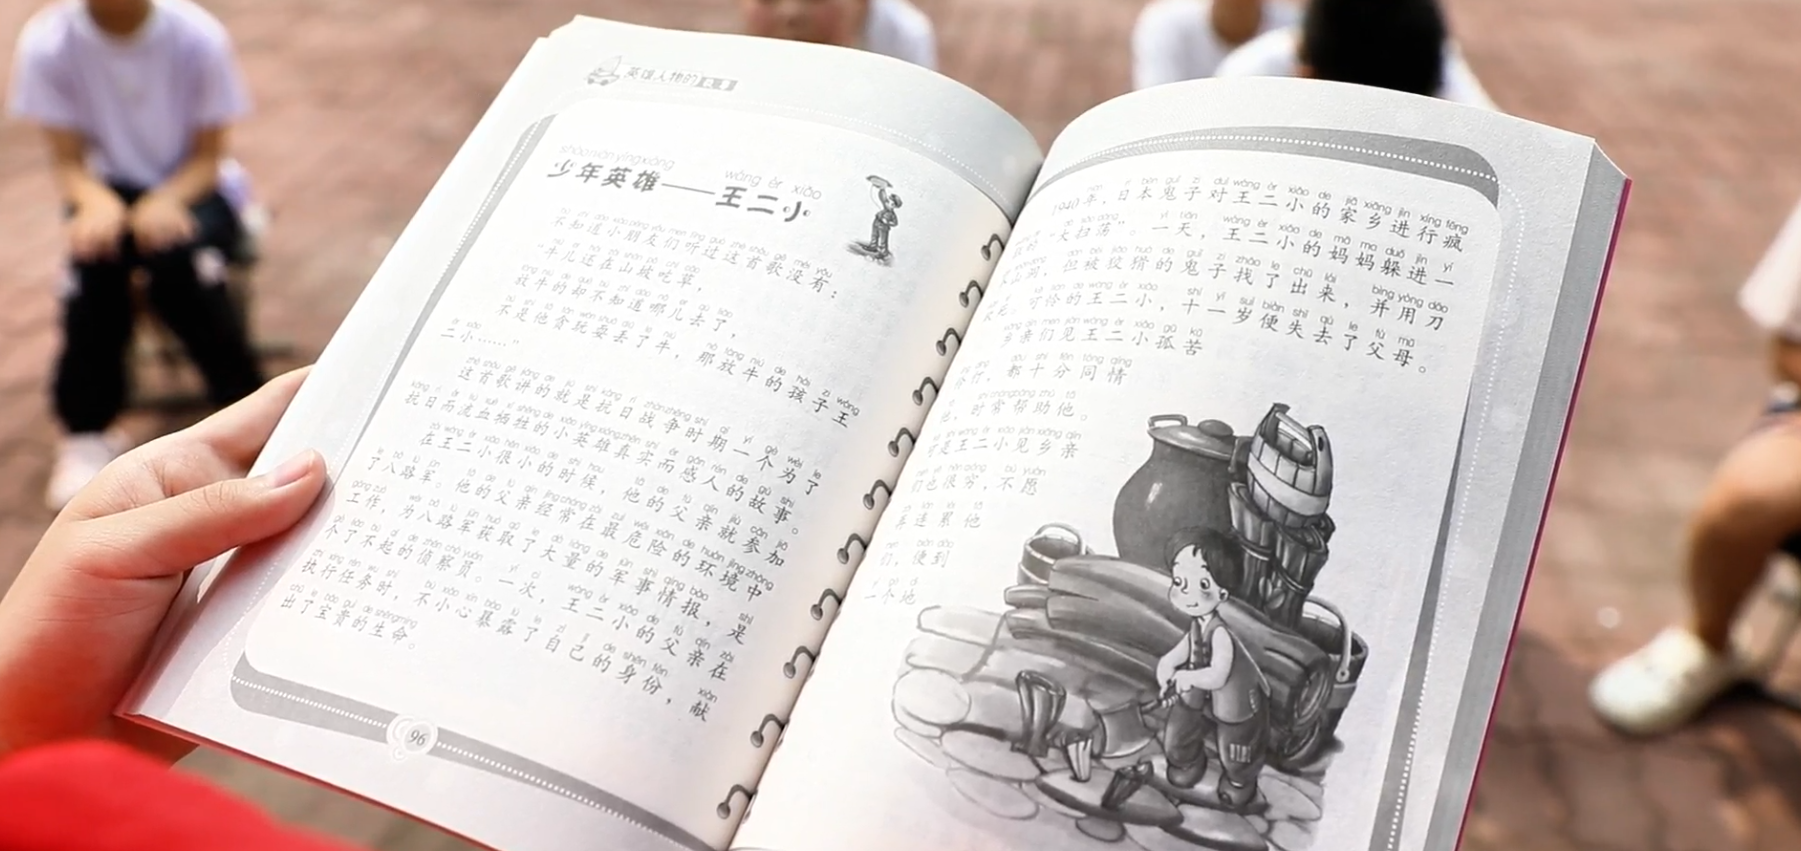 英雄人物的故事
shào nián yīng xióng wáng èr xiǎo
少年英雄——王二小
不知道小朋友们听过这首歌没有：
“牛儿还在山坡吃草，
放牛的却不知道哪儿去了，
不是他贪玩耍丢了牛，那放牛的孩子王
二小……”
这首歌讲的就是抗日战争时期一个为了
抗日而流血牺牲的小英雄真实而感人的故事。
在王二小很小的时候，他的父亲就参加
了八路军。他的父亲经常在最危险的环境中
工作，为八路军获取了大量的军事情报，是
个了不起的侦察员。一次，王二小的父亲在
执行任务时，不小心暴露了自己的身份，献
出了宝贵的生命。
96
1940年，日本鬼子对王二小的家乡进行疯
“大扫荡”。一天，王二小的妈妈躲进一
山洞，但被狡猾的鬼子找了出来，并用刀
可怜的王二小，十一岁便失去了父母。
乡亲们见王二小孤苦
伶仃，都十分同情
他，时常帮助他。
可是王二小见乡亲
们也很穷，不愿
再连累他
们，便到
一个地